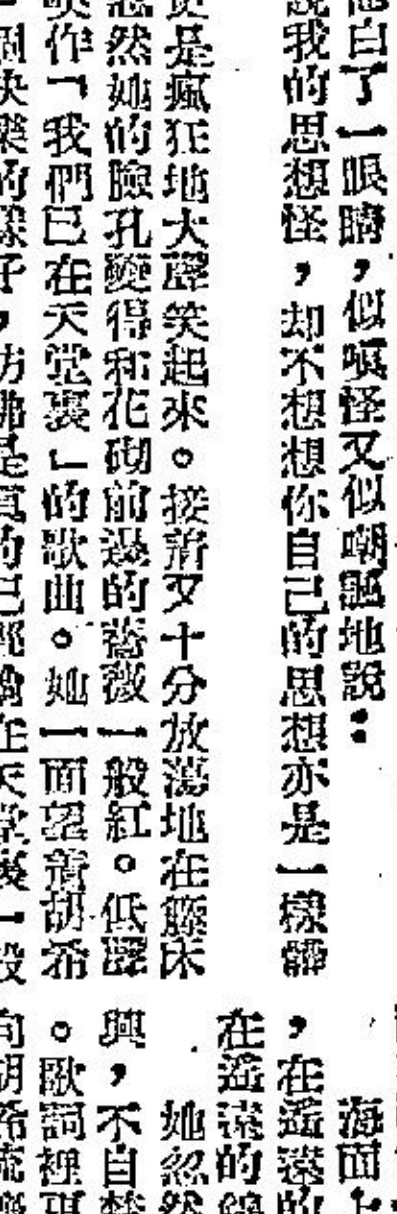 他白了一眼睛，似嗔怪又似嘲謳地說：
說我的思想怪，却不想想你自己的思想亦是一樣
是瘋狂地大聲笑起來。接着又十分放蕩地在籐床
忽然她的臉孔變得和花砌前邊的薔薇一般紅。低聲
作「我們已在天堂裏」的歌曲。她一面望着胡希
快樂的樣子，彷彿是真的已經在天堂裏一般
海面上
，在遙遠的
在遙遠的
她忽然
興，不自禁
。歌詞裡
向胡希